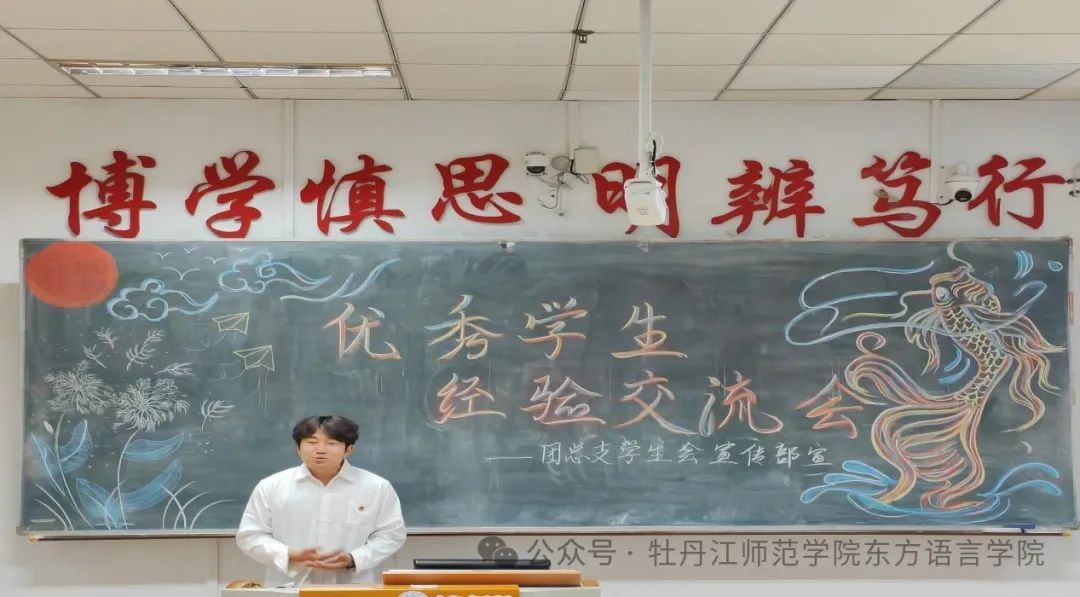 博学慎思明辨笃行
优秀学生
经验交流会
——团总支学生会宣传部宣
公众号·牡丹江师范学院东方语言学院